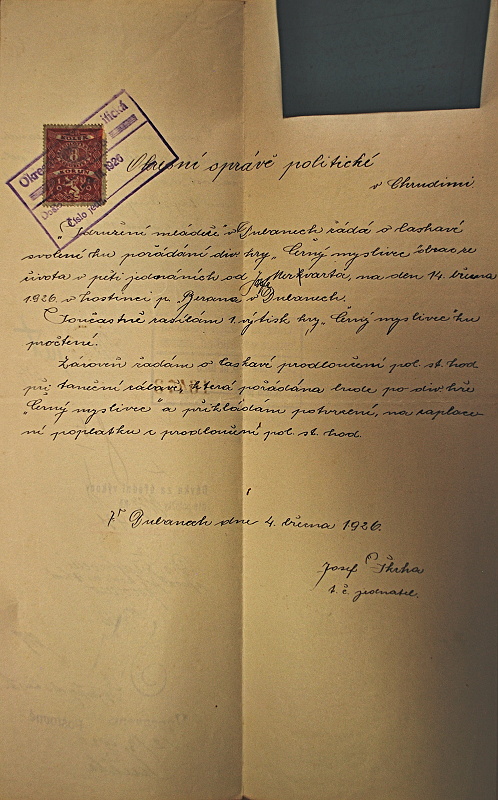 Okresní správě politické
v Chrudimi.
„Sdružení mládeže" v Dubanech žádá o laskavé
svolení ku pořádání div. hry „Černý myslivec" obraz ze
života v pěti jednáních od Jos. Merkvarta, na den 14. března
1926. v hostinci p. „Berana" v Dubanech.
Současně zasílám 1. výtisk hry „Černý myslivec" ku
pročtení.
Zároveň žádám o laskavé prodloužení pol. st. hod
při taneční zábavě, která pořádána bude po div. hře
„Černý myslivec" a přikládám potvrzení, na zaplace-
ní poplatku z prodloužení pol. st. hod.
V Dubanech dne 4. března 1926.
Josef
t. č. jednatel.
Okres
1926
Číslo